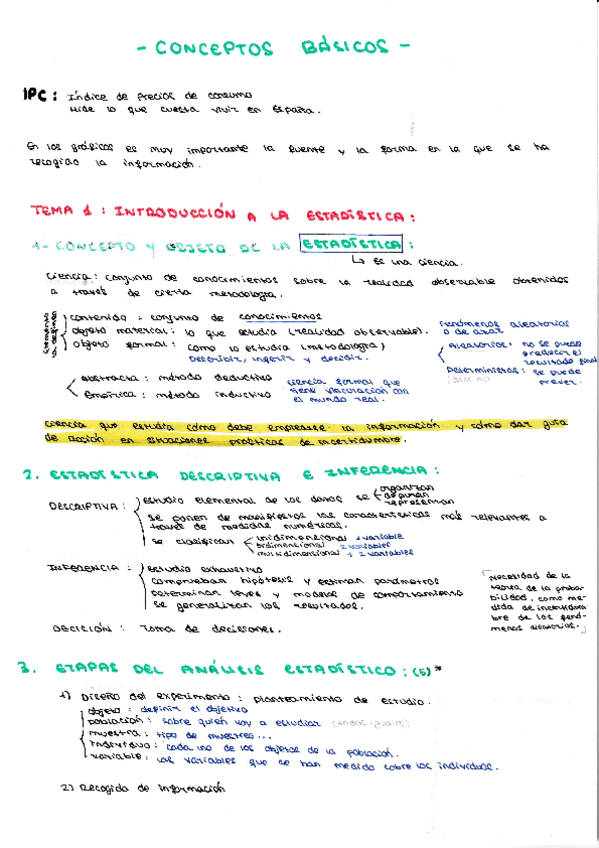 - CONCEPTOS BÁSICOS -
IPC: Índice de precios de consumo
Mide lo que cuesta vivir en España.
En los gráficos es muy importante la fuente y la forma en la que se ha
recogido la información.
TEMA 1: INTRODUCCIÓN A LA ESTADÍSTICA:
1- CONCEPTO Y OBJETO DE LA ESTADÍSTICA:
↳ Es una ciencia.
Ciencia: conjunto de conocimientos sobre la realidad observable obtenidos
a través de cierta metodología.
Elementos la definen
contenido: conjunto de conocimientos
objeto material: lo que estudia (realidad observable).
objeto formal: como lo estudia (metodología)
Describir, inferir y decidir.
Fenómenos aleatorios
o de azar
Aleatorios: no se puede
predecir el
resultado final
Deterministas: se puede
prever.
abstracta: método deductivo
Empírica: método inductivo
ciencia formal que
tiene vinculación con
el mundo real.
Ciencia que estudia cómo debe emplearse la información y cómo dar guía
de acción en situaciones prácticas de incertidumbre.
2. ESTADÍSTICA DESCRIPTIVA E INFERENCIA:
DESCRIPTIVA: estudio elemental de los datos se organizan
depuran
representan
se ponen de manifiesto las características más relevantes a
través de medidas numéricas.
se clasifican unidimensional 1 variable
bidimensional 2 variables
multidimensional + 2 variables
INFERENCIA: estudio exhaustivo
comprueban hipótesis y estiman parámetros
determinan leyes y modelos de comportamiento
se generalizan los resultados.
Necesidad de la
teoría de la proba-
bilidad, como me-
dida de incertidum
bre de los fenó-
menos aleatorios.
DECISIÓN: Toma de decisiones.
3. ETAPAS DEL ANÁLISIS ESTADÍSTICO: (5)*
1) Diseño del experimento: planteamiento de estudio.
objeto: definir el objetivo
población: sobre quien voy a estudiar
muestra: tipo de muestreo...
individuo: cada uno de los objetos de la población.
variable: las variables que se han medido sobre los individuos.
2) Recogida de información